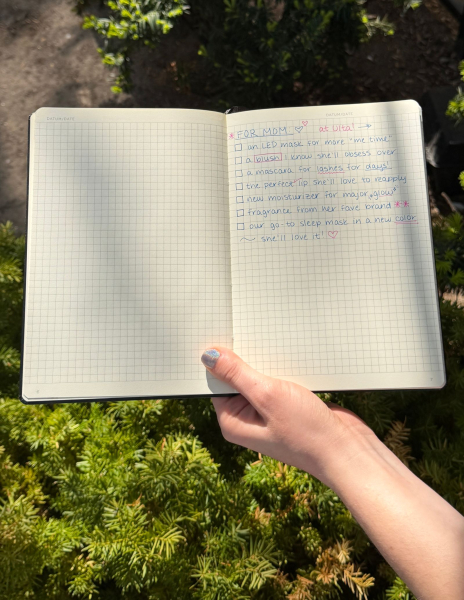 * FOR MOM ♡♡ at Ulta! →
☐ an LED mask for more "me time"
☐ a blush I know she'll obsess over
☐ a mascara for lashes for days
☐ the perfect lip she'll love to reapply
☐ new moisturizer for major "glow"
☐ fragrance from her fave brand **
☐ our go-to sleep mask in a new color
~ she'll love it! ♡